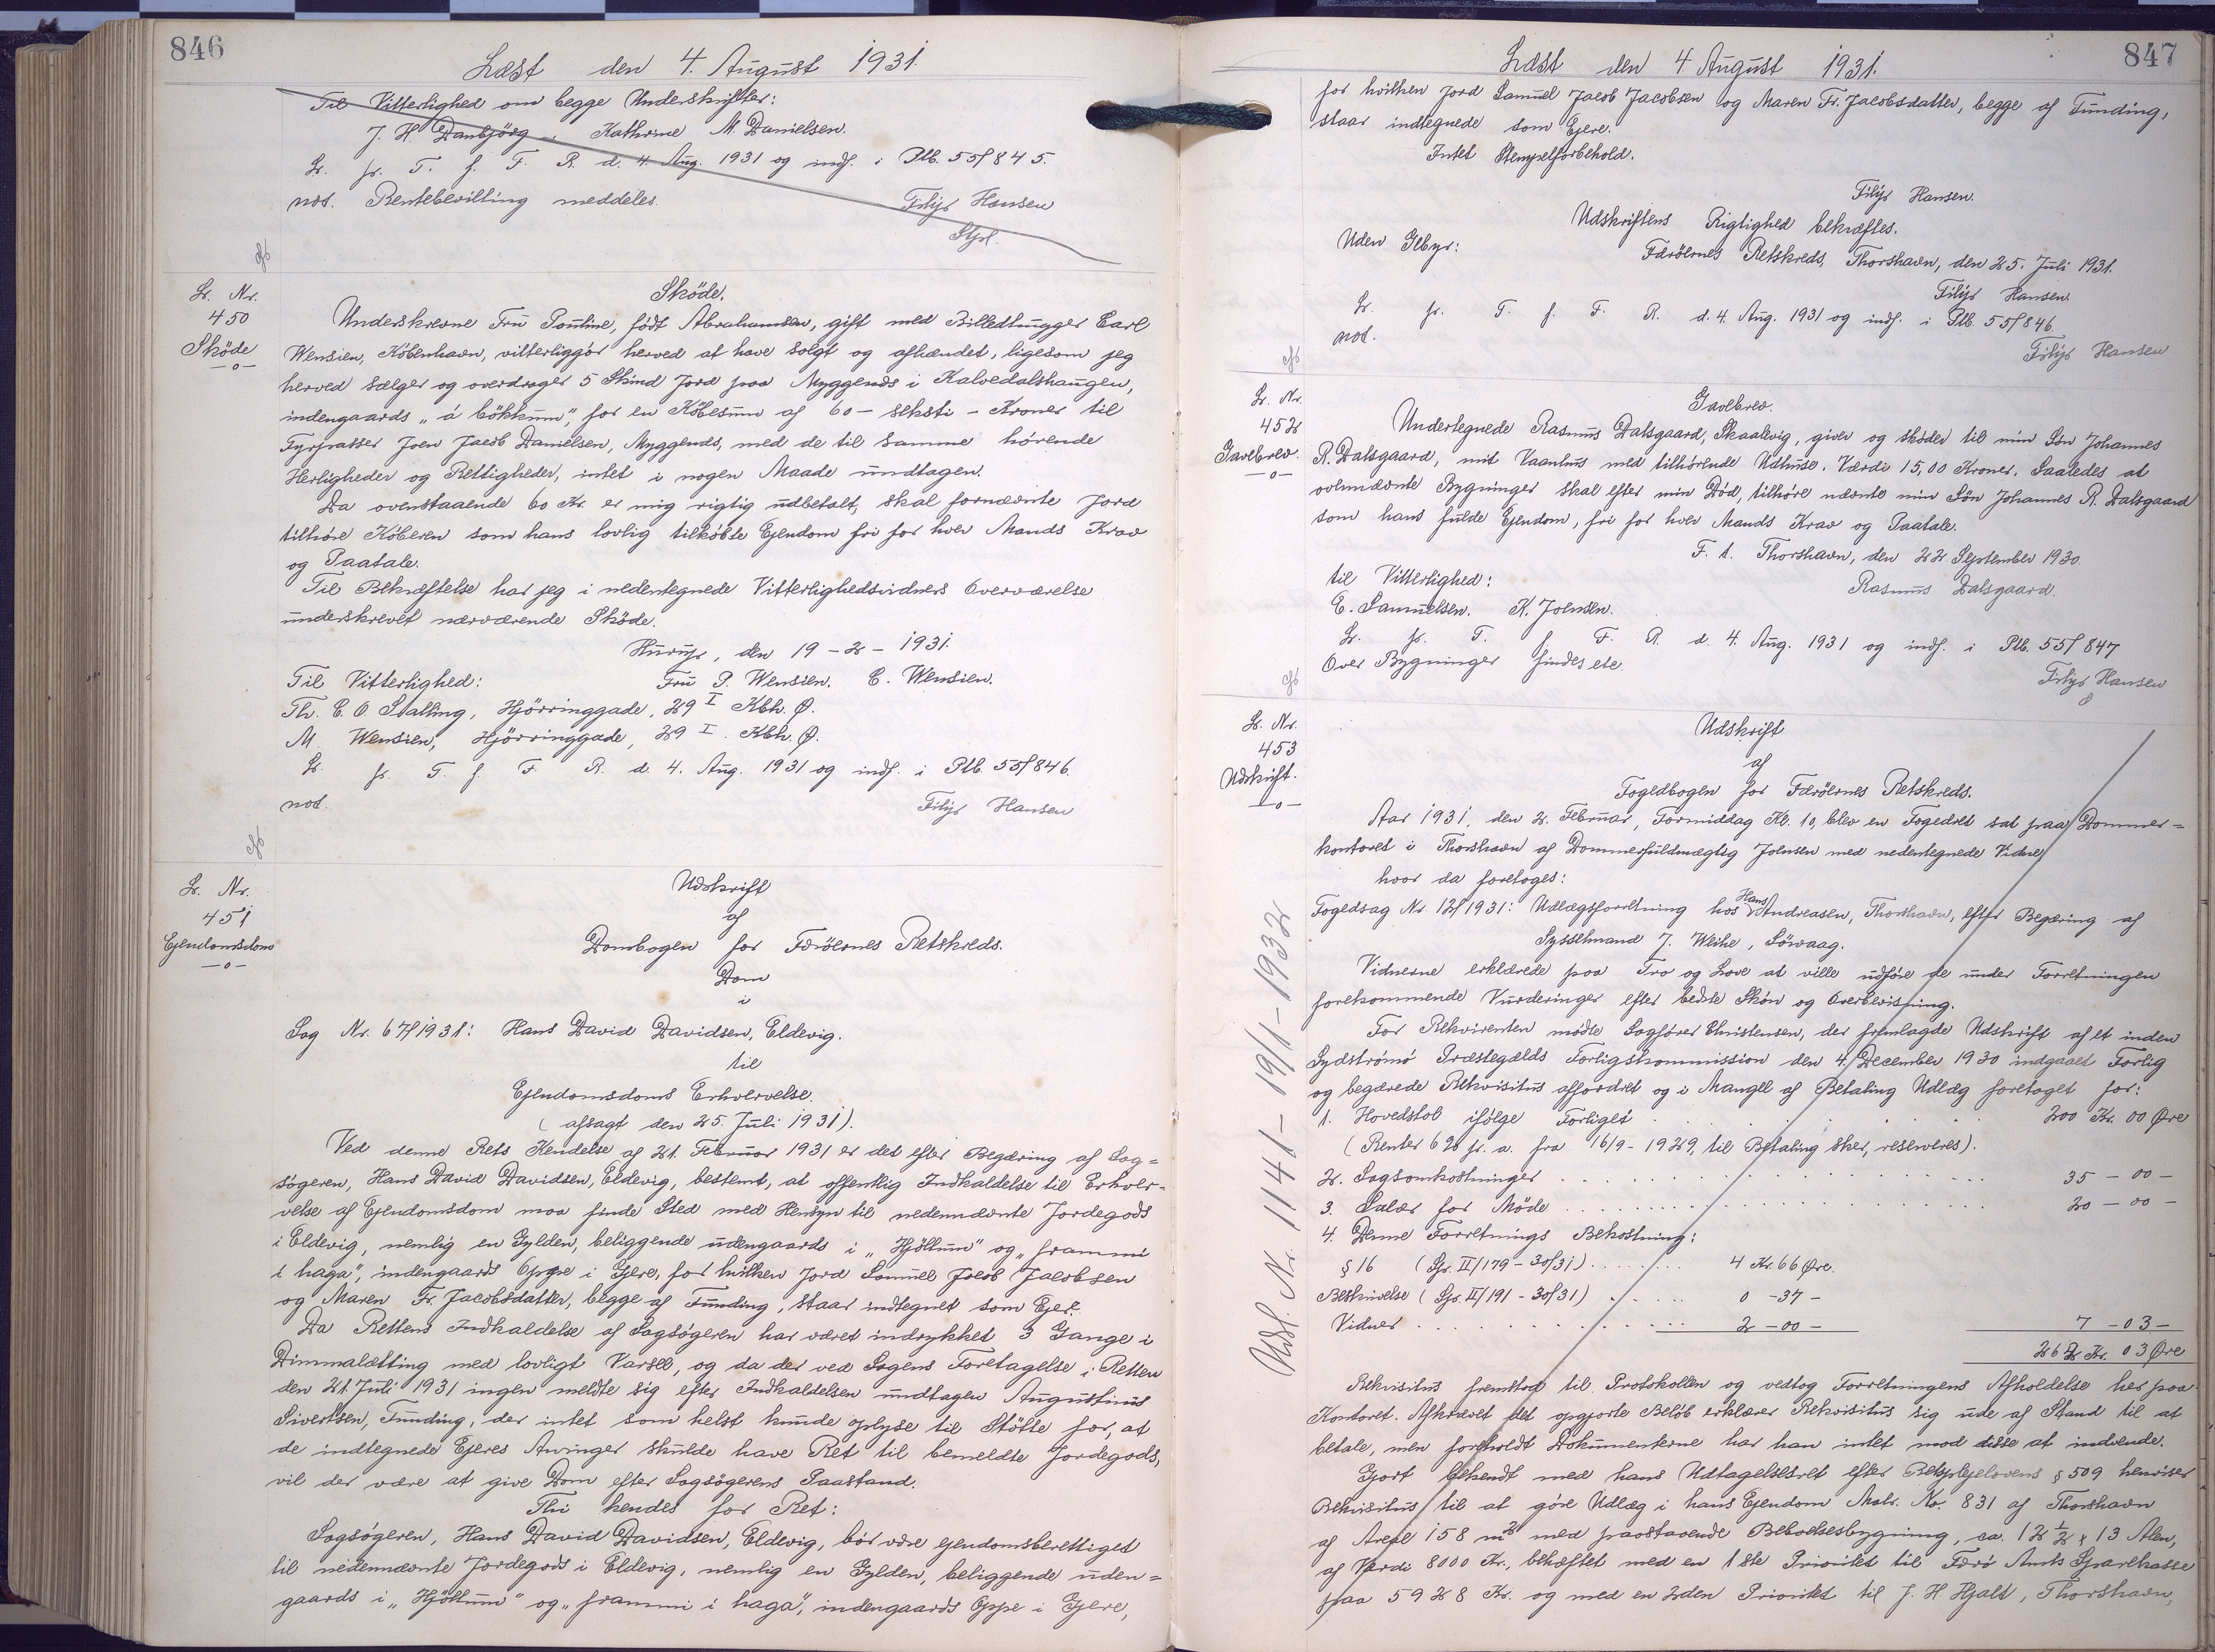 846
Læst den 4. August 1931.
Til Vitterlighed om begge Underskrifter:
J. H. Danbjörg. Kathrine M. Danielsen.
L. fr. T. f. F. R. d. 4. Aug. 1931 og indf. i Ptb. 55/845.
not. Rentebevilling meddeles.
Filip Hansen
Stpl.
L. Nr.
450
Sköde
—o—
Sköde.
Underskrevne Fru Pouline, født Abrahamsen, gift med Billedhugger Carl
Wensien, København, vitterliggör herved at have solgt og afhændet, ligesom jeg
herved sælger og overdrager 5 Skind Jord paa Myggenæs i Kalvedalshaugen,
indengaards „á bökkum“, for en Købesum af 60 – seksti – Kroner til
Fyrpasser Joen Jacob Danielsen, Myggenæs, med de til samme hørende
Herligheder og Rettigheder, intet i nogen Maade undtagen.
Da ovenstaaende 60 Kr. er mig rigtig udbetalt, skal fornævnte Jord
tilhøre Køberen som hans lovlig tilkøbte Ejendom fri for hver Mands Krav
og Paatale.
Til Bekræftelse har jeg i nedentegnede Vitterlighedsvidners Overværelse
underskrevet nærværende Sköde.
Hurup, den 19 – 2 – 1931.
Til Vitterlighed: Fru P. Wensien. C. Wensien.
Th. C. O. Stalling, Hjörringgade, 29 I Kbh. Ø.
M. Wensien, Hjörringgade, 29 I. Kbh. Ø.
L. fr. T. f. F. R. d. 4. Aug. 1931 og indf. i Ptb. 55/846.
not. Filip Hansen
L. Nr.
451
Ejendomsdom
—o—
Udskrift
af
Dombogen for Færöernes Retskreds.
Dom
i
Sag Nr. 67/1931: Hans David Davidsen, Eldevig.
til
Ejendomsdoms Erhvervelse.
(afsagt den 25. Juli 1931).
Ved denne Rets Kendelse af 21. Februar 1931 er det efter Begæring af Sag=
søgeren, Hans David Davidsen, Eldevig, bestemt, at offentlig Indkaldelse til Erhver=
velse af Ejendomsdom maa finde Sted med Hensyn til nedennævnte Jordegods
i Eldevig, nemlig en Gylden, beliggende udengaards i „Hjöllum“ og „frammi
i haga“, indengaards Oppe i Gjere, for hvilken Jord Samuel Jacob Jacobsen
og Maren Fr. Jacobsdatter, begge af Funding, staar indtegnet som Ejer.
Da Rettens Indkaldelse af Sagsøgeren har været indrykket 3 Gange i
Dimmalætting med lovligt Varsel, og da der ved Sagens Foretagelse i Retten
den 21. Juli 1931 ingen meldte sig efter Indkaldelsen undtagen Augustinus
Sivertsen, Funding, der intet som helst kunde oplyse til Støtte for, at
de indtegnede Ejeres Arvinger skulde have Ret til bemeldte Jordegods,
vil der være at give Dom efter Sagsøgerens Paastand.
Thi kendes for Ret:
Sagsøgeren, Hans David Davidsen, Eldevig, bör være ejendomsberettiget
til nedennævnte Jordegods i Eldevig, nemlig en Gylden, beliggende uden=
gaards i „Hjöllum“ og „frammi i haga“, indengaards Oppe i Gjere,
847
Læst den 4 August 1931.
for hvilken Jord Samuel Jacob Jacobsen og Maren Fr. Jacobsdatter, begge af Funding,
staar indtegnede som Ejere.
Intet Stempelforbehold.
Filip Hansen.
Udskriftens Rigtighed bekræftes.
Uden Gebyr: Færöernes Retskreds, Thorshavn, den 25. Juli 1931.
Filip Hansen.
L. fr. T. f. F. R. d. 4. Aug. 1931 og indf. i Ptb. 55/846.
not.
Filip Hansen
L. Nr.
452
Gavebrev.
—o—
Gavebrev.
Undertegnede Rasmus Dalsgaard, Skaalevig, giver og skøder til min Søn Johannes
R. Dalsgaard, mit Vaanhus med tilhørende Udhuse. Værdi 15,00 Kroner. Saaledes at
ovennævnte Bygninger skal efter min Død, tilhøre nævnte min Søn Johannes R. Dalsgaard
som hans fulde Ejendom, fri for hver Mands Krav og Paatale.
F. t. Thorshavn, den 22. September 1930.
til Vitterlighed: Rasmus Dalsgaard.
E. Samuelsen. K. Joensen.
L. fr. T. f. F. R. d. 4. Aug. 1931 og indf. i Ptb. 55/847
Over Bygninger findes ete.
Filip Hansen
L. Nr.
453
Udskrift.
—o—
Udskrift
af
Fogedbogen for Færöernes Retskreds.
Aar 1931, den 2. Februar, Formiddag Kl. 10, blev en Fogedret sat paa Dommer=
kontoret i Thorshavn af Dommerfuldmægtig Joensen med nedentegnede Vidner
hvor da foretoges:
Fogedsag Nr 12/1931: Udlægsforretning hos Hans Andreasen, Thorshavn, efter Begæring af
Sysselmand J. Weihe, Sörvaag.
Vidnerne erklærede paa Tro og Love at ville udføre de under Forretningen
forekommende Vurderinger efter bedste Skön og Overbevisning.
For Rekvirenten mødte Sagfører Christensen, der fremlagde Udskrift af et inden
Sydströmö Præstegælds Forligskommission den 4. December 1930 indgaaet Forlig
og begærede Rekvisitus affordret og i Mangel af Betaling Udlæg foretaget for:
1. Hovedstol ifølge Forliget . . . 200 Kr. 00 Øre
(Renter 6% fr. a. fra 16/9 - 1929, til Betaling sker, reserveres).
2. Sagsomkostninger . . . 35 – 00 –
3. Salær for Møde . . . 20 – 00 –
4. Denne Forretnings Bekostning:
§ 16 (Gr. II/179 – 30/31) . . . 4 Kr. 66 Øre.
Beskrivelse (Gr. II/191 – 30/31) . . . 0 – 37 –
Vidner . . . 2 – 00 – 7 – 03 –
262 Kr. 03 Øre
Rekvisitus fremstod til Protokollen og vedtog Forretningens Afholdelse her paa
Kontoret. Afkrævet det opgjorte Beløb erklærer Rekvisitus sig ude af Stand til at
betale, men foreholdt Dokumenterne har han intet mod disse at indvende.
Gjort bekendt med hans Udtagelsesret efter Retsplejelovens § 509 henviser
Rekvisitus til at göre Udlæg i hans Ejendom Matr. No. 831 af Thorshavn
af Areal 158 m2 med paastaaende Beboelsesbygning, ca. 12 1/2 x 13 Alen,
af Værdi 8000 Kr., behæftet med en 1ste Prioritet til Færö Amts Sparekasse
paa 5928 Kr. og med en 2den Prioritet til J. H Hjalt, Thorshavn,
Udsl. Nr. 1141 – 19/1 – 1932